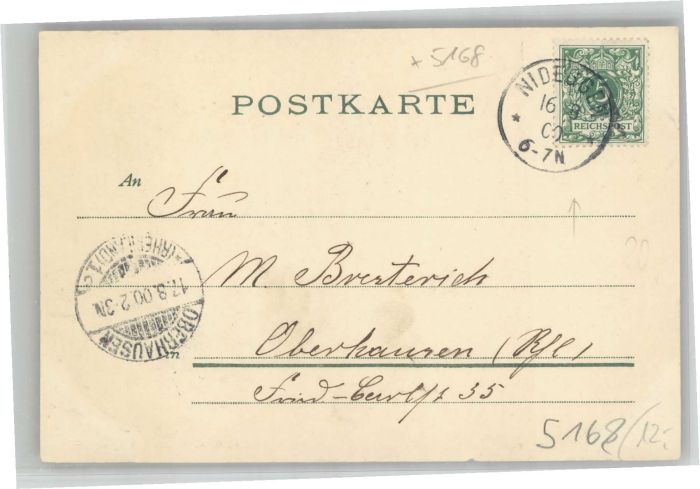 * 5168
POSTKARTE
NIDEGGEN
16 8
00
6-7N
REICHSPOST
An
Frau
M. Bresterich
Oberhausen (Rhl)
in
35
(RHEINLAND) 1
17.8.00.2-3N
OBERHAUSEN
20
5168 / 12.-